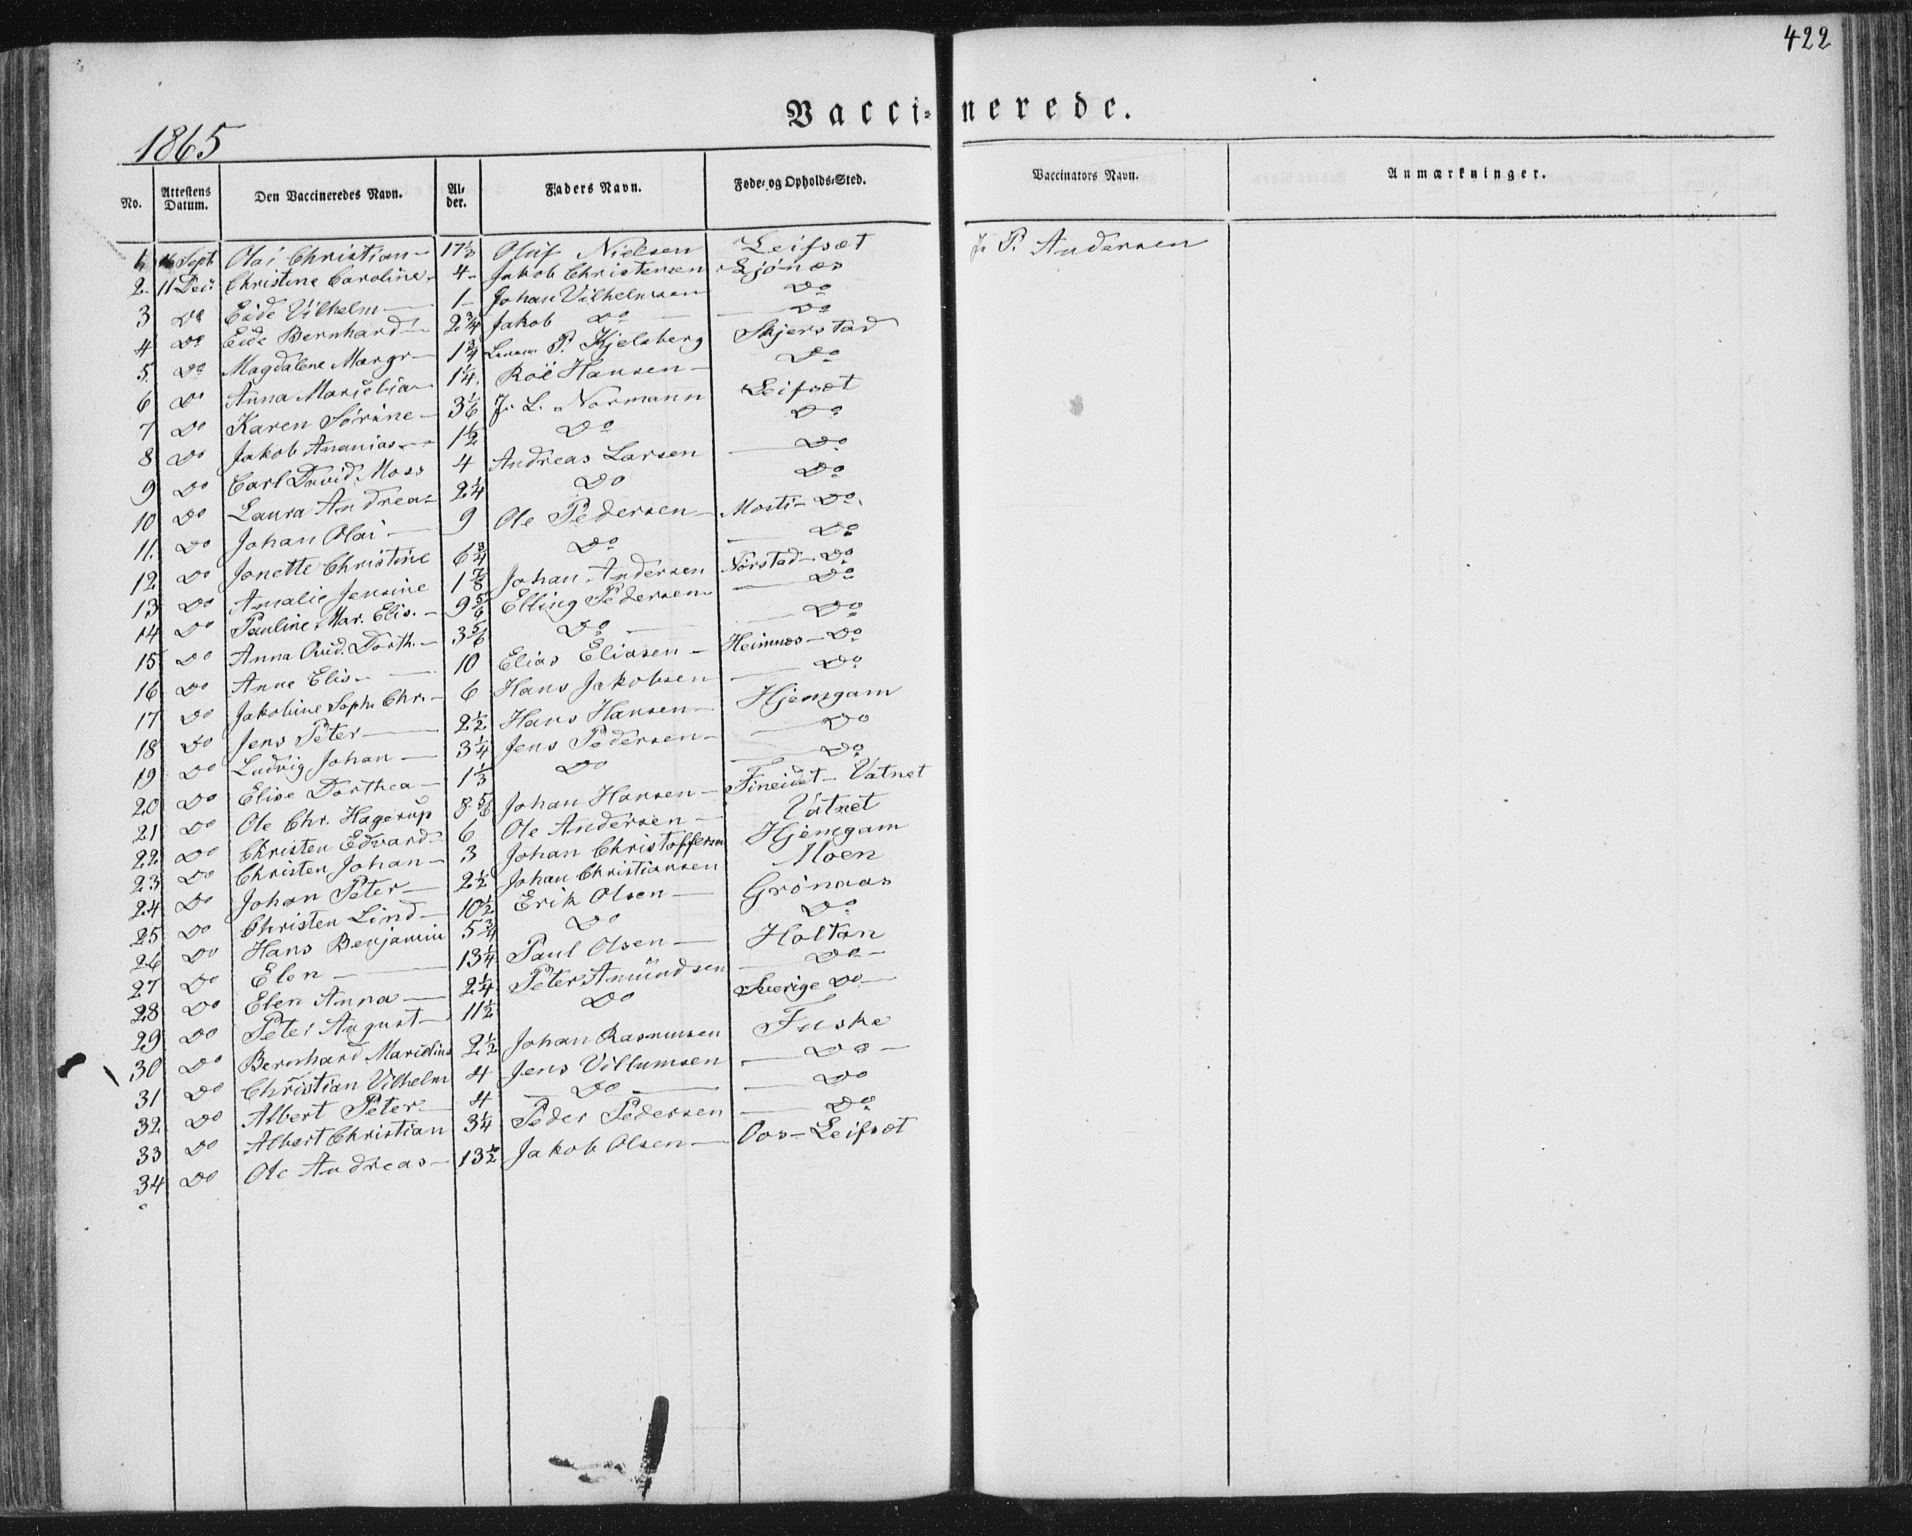 422
Vacci-nerede.
1865
No. Attestens Datum. Den Vaccineredes Navn. Alder. Faders Navn. Føde- og Opholds-Sted. Vaccinators Navn. Anmærkninger.
1 16 Sept. Olai Christian 17½ Oluf Nielsen Leifset J. P. Andersen
2 11 Dec: Christine Caroline 4 Jakob Christensen Ljönæs
3 Do Eide Vilhelm 1 Johan Vilhelmsen Do
4 Do Eide Bernhard 2¾ Jakob Do Do
5. Do Magdalene Margr 1¾ P. Kjelsberg Skjerstad
6 Do Anna Marselia 1¼ Roë Hansen Do
7 Do Karen Sörine 3⅙ J. L. Normann Leifset
8 Do Jakob Ananias 1½ Do Do
9 Do Carl David Moss 4 Andreas Larsen Do
10 Do Laura Andrea 2¼ Do Do
11. Do Johan Olai 9 Ole Pedersen Mosti Do
12 Do Jonette Christine 6¾ Do Do
13 Do Amalie Jensine 1⅞ Johan Andersen Nörstad Do
14 Do Pauline Mar. Elis. 9⅚ Elling Pedersen Do
15 Do Anna Ovid. Dorth. 3⅚ Do Do
16 Do Anne Elis. 10 Elias Eliasen Heimnæs Do
17 Do Jakobine Soph. Chr. 6 Hans Jakobsen Do
18 Do Jens Peter 2½ Hans Hansen Hjemgam
19 Do Ludvig Johan 3¼ Jens Pedersen Do
20 Do Elise Dorthea 1⅓ Do Do
21 Do Ole Chr. Hagerup 8⅚ Johan Hansen Fineidet - Vatnet
22 Do Christen Edvard 6 Ole Andersen Vatnet
23 Do Christen Johan 3 Johan Christoffersen Hjemgam
24 Do Johan Peter 2½ Johan Christiansen Moen
25 Do Christen Lind 10½ Erik Olsen Grönnas
26 Do Hans Benjamin 5¾ Do Do
27 Do Elen 13¼ Paul Olsen Holtan
28 Do Elen Anna 2¼ Peter Amundsen Do
29 Do Peter August 11½ Do Sverige Do
30 Do Bernhard Maridius 2½ Johan Rasmussen Fuske
31 Do Christian Vilhelm 4 Jens Villumsen Do
32 Do Albert Peter 4 Do Do
33 Do Albert Christian 3¼ Peder Pedersen Do
34 Do Ole Andreas 13½ Jakob Olsen Oos - Leifset